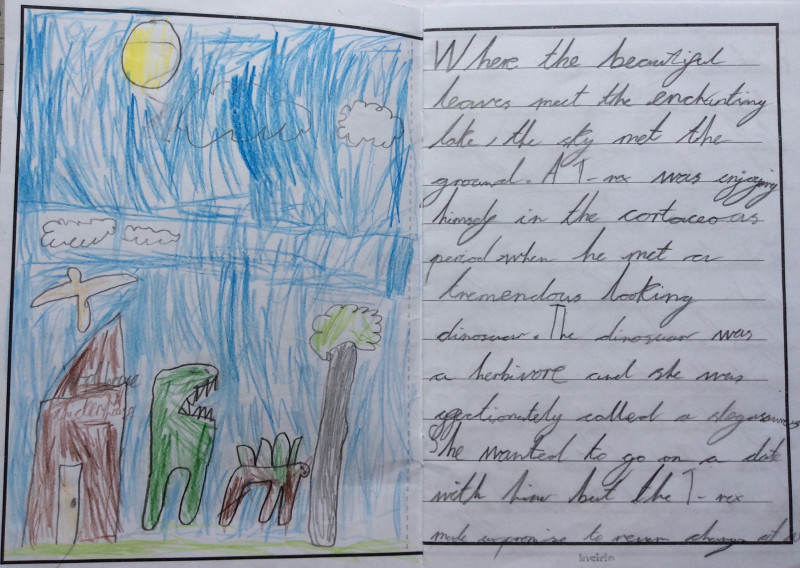 Where the beautiful
leaves meet the enchanting
lake, the sky met the
ground. A T-rex was enjoying
himself in the cortaceous
period when he met a
tremendous looking
dinosaur. The dinosaur was
a herbivore and she was
affectionately called a
She wanted to go on a date
with him but the T-rex
made to never